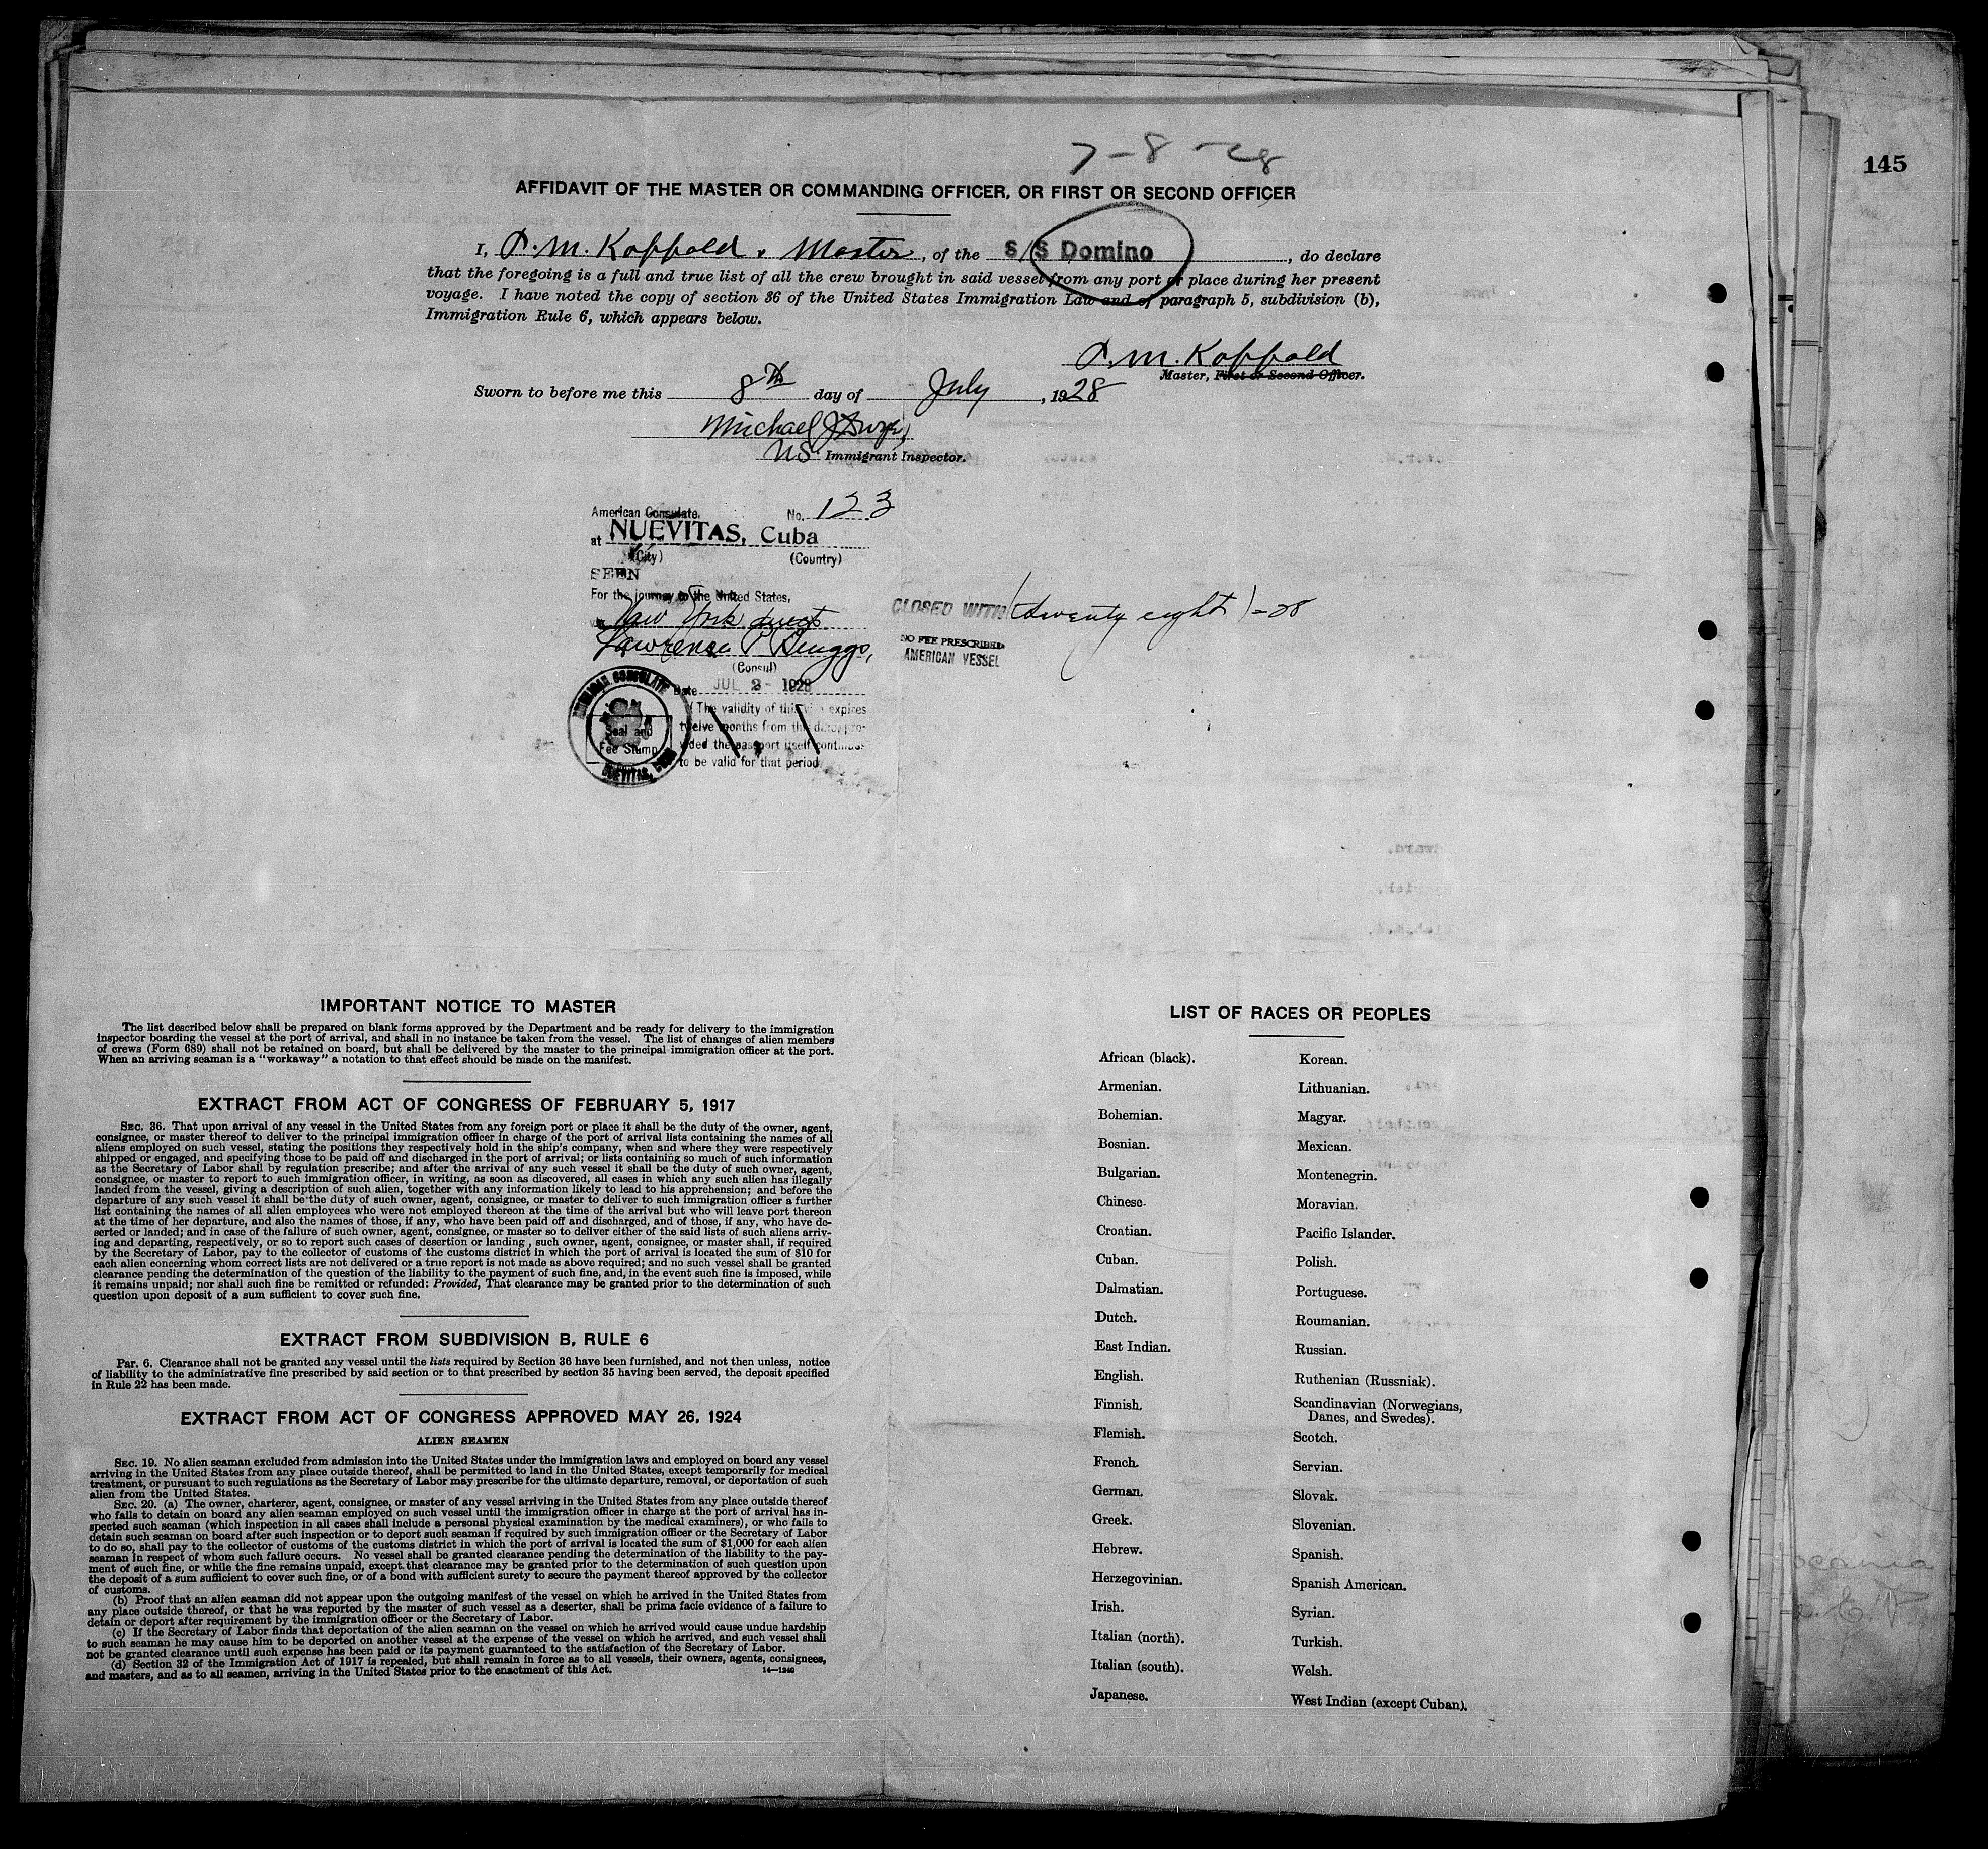 145
7-8-28
AFFIDAVIT OF THE MASTER OR COMMANDING OFFICER, OR FIRST OR SECOND OFFICER
I, P. M. Koppald, Master, of the S/S Domino, do declare
that the foregoing is a full and true list of all the crew brought in said vessel from any port or place during her present
voyage. I have noted the copy of section 36 of the United States Immigration Law and of paragraph 5, subdivision (b),
Immigration Rule 6, which appears below.
P. M. Koppald
Master, First or Second Officer.
Sworn to before me this 8th day of July, 1928
Michael J
US Immigrant Inspector.
American Consulate. No. 123
at NUEVITAS, Cuba
(City) (Country)
SEEN
For the journey to the United States,
New York direct
Lawrence P Briggs,
(Consul)
Date JUL 2- 1928
(The validity of this visa expires
twelve months from this date, pro-
vided the passport itself continues
to be valid for that period.
AMERICAN CONSULATE
Seal and
Fee Stamp
NUEVITAS, CUBA
CLOSED WITH (twenty eight) = 28
NO FEE PRESCRIBED
AMERICAN VESSEL
IMPORTANT NOTICE TO MASTER
The list described below shall be prepared on blank forms approved by the Department and be ready for delivery to the immigration
inspector boarding the vessel at the port of arrival, and shall in no instance be taken from the vessel. The list of changes of alien members
of crews (Form 689) shall not be retained on board, but shall be delivered by the master to the principal immigration officer at the port.
When an arriving seaman is a "workaway" a notation to that effect should be made on the manifest.
EXTRACT FROM ACT OF CONGRESS OF FEBRUARY 5, 1917
SEC. 36. That upon arrival of any vessel in the United States from any foreign port or place it shall be the duty of the owner, agent,
consignee, or master thereof to deliver to the principal immigration officer in charge of the port of arrival lists containing the names of all
aliens employed on such vessel, stating the positions they respectively hold in the ship's company, when and where they were respectively
shipped or engaged, and specifying those to be paid off and discharged in the port of arrival; or lists containing so much of such information
as the Secretary of Labor shall by regulation prescribe; and after the arrival of any such vessel it shall be the duty of such owner, agent,
consignee, or master to report to such immigration officer, in writing, as soon as discovered, all cases in which any such alien has illegally
landed from the vessel, giving a description of such alien, together with any information likely to lead to his apprehension; and before the
departure of any such vessel it shall be the duty of such owner, agent, consignee, or master to deliver to such immigration officer a further
list containing the names of all alien employees who were not employed thereon at the time of the arrival but who will leave port thereon
at the time of her departure, and also the names of those, if any, who have been paid off and discharged, and of those, if any, who have de-
serted or landed; and in case of the failure of such owner, agent, consignee, or master so to deliver either of the said lists of such aliens arriv-
ing and departing, respectively, or so to report such cases of desertion or landing, such owner, agent, consignee, or master, shall, if required
by the Secretary of Labor, pay to the collector of customs of the customs district in which the port of arrival is located the sum of $10 for
each alien concerning whom correct lists are not delivered or a true report is not made as above required; and no such vessel shall be granted
clearance pending the determination of the question of the liability to the payment of such fine, and, in the event such fine is imposed, while
it remains unpaid; nor shall such fine be remitted or refunded: Provided, That clearance may be granted prior to the determination of such
question upon deposit of a sum sufficient to cover such fine.
EXTRACT FROM SUBDIVISION B, RULE 6
PAR. 6. Clearance shall not be granted any vessel until the lists required by Section 36 have been furnished, and not then unless, notice
of liability to the administrative fine prescribed by said section or to that prescribed by section 35 having been served, the deposit specified
in Rule 22 has been made.
EXTRACT FROM ACT OF CONGRESS APPROVED MAY 26, 1924
ALIEN SEAMEN
SEC. 19. No alien seaman excluded from admission into the United States under the immigration laws and employed on board any vessel
arriving in the United States from any place outside thereof, shall be permitted to land in the United States, except temporarily for medical
treatment, or pursuant to such regulations as the Secretary of Labor may prescribe for the ultimate departure, removal, or deportation of such
alien from the United States.
SEC. 20. (a) The owner, charterer, agent, consignee, or master of any vessel arriving in the United States from any place outside thereof
who fails to detain on board any alien seaman employed on such vessel until the immigration officer in charge at the port of arrival has in-
spected such seaman (which inspection in all cases shall include a personal physical examination by the medical examiners), or who fails to
detain such seaman on board after such inspection or to deport such seaman if required by such immigration officer or the Secretary of Labor
to do so, shall pay to the collector of customs of the customs district in which the port of arrival is located the sum of $1,000 for each alien
seaman in respect of whom such failure occurs. No vessel shall be granted clearance pending the determination of the liability to the pay-
ment of such fine, or while the fine remains unpaid, except that clearance may be granted prior to the determination of such question upon
the deposit of a sum sufficient to cover such fine, or of a bond with sufficient surety to secure the payment thereof approved by the collector
of customs.
(b) Proof that an alien seaman did not appear upon the outgoing manifest of the vessel on which he arrived in the United States from
any place outside thereof, or that he was reported by the master of such vessel as a deserter, shall be prima facie evidence of a failure to
detain or deport after requirement by the immigration officer or the Secretary of Labor.
(c) If the Secretary of Labor finds that deportation of the alien seaman on the vessel on which he arrived would cause undue hardship
to such seaman he may cause him to be deported on another vessel at the expense of the vessel on which he arrived, and such vessel shall
not be granted clearance until such expense has been paid or its payment guaranteed to the satisfaction of the Secretary of Labor.
(d) Section 32 of the Immigration Act of 1917 is repealed, but shall remain in force as to all vessels, their owners, agents, consignees,
and masters, and as to all seamen, arriving in the United States prior to the enactment of this Act. 14—1240
LIST OF RACES OR PEOPLES
African (black).
Armenian.
Bohemian.
Bosnian.
Bulgarian.
Chinese.
Croatian.
Cuban.
Dalmatian.
Dutch.
East Indian.
English.
Finnish.
Flemish.
French.
German.
Greek.
Hebrew.
Herzegovinian.
Irish.
Italian (north).
Italian (south).
Japanese.
Korean.
Lithuanian.
Magyar.
Mexican.
Montenegrin.
Moravian.
Pacific Islander.
Polish.
Portuguese.
Roumanian.
Russian.
Ruthenian (Russniak).
Scandinavian (Norwegians,
Danes, and Swedes).
Scotch.
Servian.
Slovak.
Slovenian.
Spanish.
Spanish American.
Syrian.
Turkish.
Welsh.
West Indian (except Cuban).